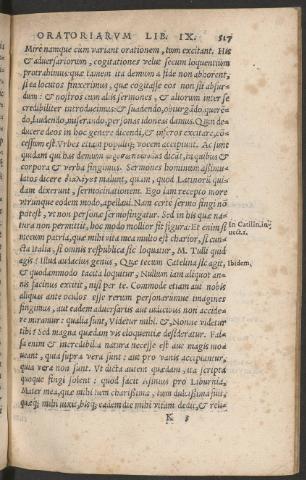 ORATORIARVM LIB. IX. 517
Mirè namque cùm variant orationem, tum excitant. His
& adversariorum, cogitationes velut secum loquentium
protrahimus: quæ tamen ita demum à fide non abhorrent,
si ea locutos finxerimus, quæ cogitasse eos non sit absur-
dum: & nostros cum aliis sermones, & aliorum inter se
credibiliter introducimus: & suadendo, obiurgãdo, queren
do, laudendo, miserando, personas idoneas damus. Quin de-
ducere deos in hoc genere dicendi, & inferos excitare, cõ-
cessum est. Vrbes etiam populiq; vocem accipiunt. Ac sunt
quidam qui has demum dicãt, in quibus &
corpora & verba fingimus. Sermones hominum assimu-
latos dicere malunt, quàm, quod Latinorũ qui-
dam dixerunt, sermocinationem. Ego iam recepto more
vtrunque eodem modo, apellani. Nam certè sermo fingi nõ
potest, vt non personæ sermo fingatur. Sed in his quæ na-
tura non permittit, hoc modo mollior fit figura: Et enim si
mecum patria, quæ mihi vita mea multo est charior, si cun-
cta Italia, si omnis respublica sic loquatur, M. Tulli quid
agis? Illud audacius genus, Quæ tecum Catilina sic agit,
& quodammodo tacita loquitur, Nullum iam aliquot an-
nis facinus extitit, nisi per te. Commodè etiam aut nobis
aliquas ante oculos esse rerum personarumue imagines
fingimus, aut eadem adversariis aut iudicibus non accide-
re miramur: qualia sunt, Videtur mihi. &, Nonne videtur
tibi? Sed magna quædam vis eloquentiæ desideratur. Fal-
sa enim & incredibilia natura necesse est aut magis mo-
ueant, quia supra vera sunt: aut pro vanis accipiantur,
quia vera non sunt. Vt dicta autem quædam, ita scripta
quoque fingi solent: quod facit Asinius pro Liburnia,
Mater mea, quæ mihi tum charissima, tum dulcissima fuit,
quæq; mihi vixit, bisq; eadem die mihi vitam dedit, & reli-
K 3
In Catilin. in-
uect. 1.
Ibidem,